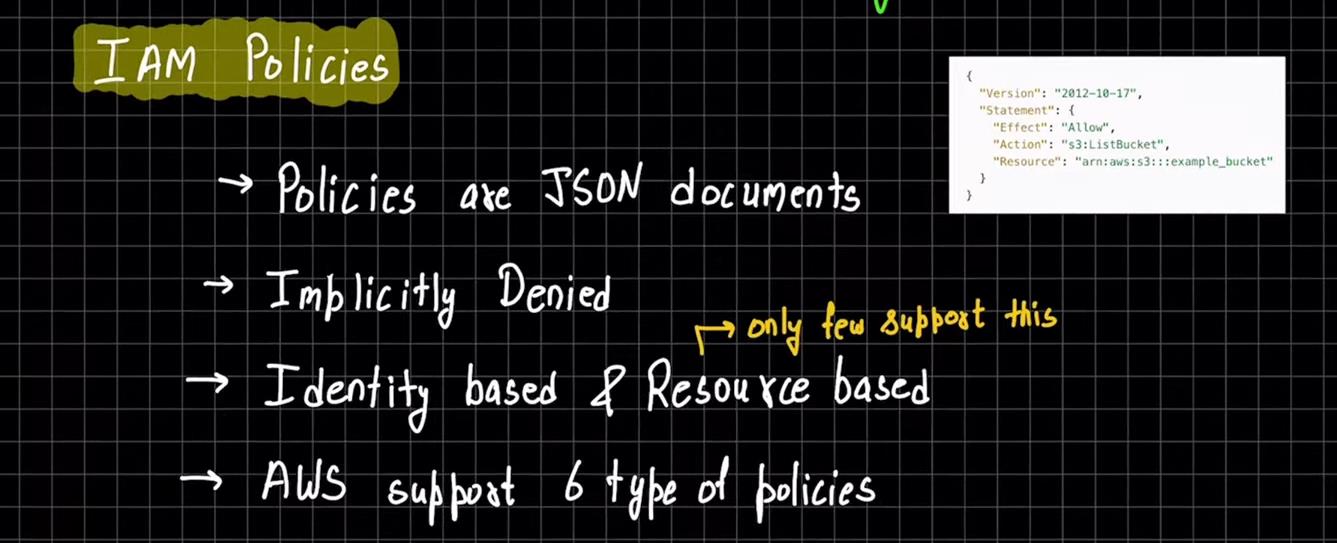 IAM Policies
{
"Version": "2012-10-17",
"Statement": {
"Effect": "Allow",
"Action": "s3:ListBucket",
"Resource": "arn:aws:s3:::example_bucket"
}
}
→ Policies are JSON documents
→ Implicitly Denied
→ only few support this
→ Identity based & Resource based
→ AWS support 6 type of policies